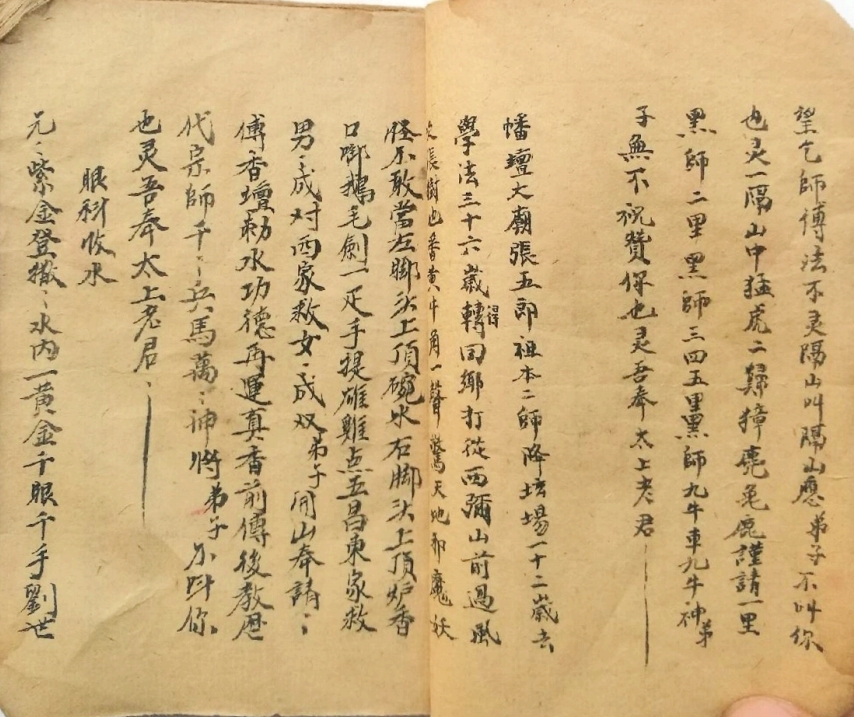 望乞師傅法不灵隔山叫隔山應弟子不叫你
也灵一隔山中猛虎二歸獐麂龟鹿謹請一里
黑師二里黑師三四五里黑師九牛車九牛神弟
子無不祝贊你也灵吾奉太上老君
幡壇大廟張五郎祖本二師降坛場一十二歲去
學法三十六歲轉得回鄉打從西彌山前過風
張樹也番黄牛角一聲驚天地邪魔妖
怪不敢當左脚头上頂碗水右脚头上頂炉香
口啣鵝毛劍一疋手提雄雞点五昌東家救
男：成对西家救女：成双弟子開山奉請：
傅香壇勅水功德再運真香前傳後教歷
代宗師千：兵馬萬：神將弟子不叫你
也灵吾奉太上老君：
眼科收水
元：紫金登撒：水内一黄金千眼千手劉世